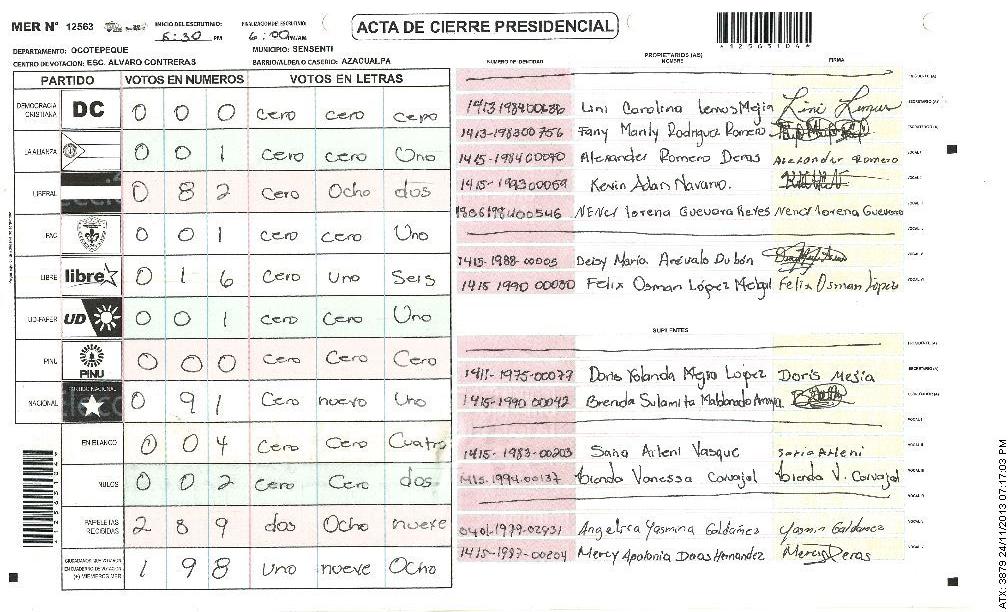 MER Nº 12563 INICIO DEL ESCRUTINIO: 5:30 PM FINALIZACION DE ESCRUTINIO: 6:00 PM/AM ACTA DE CIERRE PRESIDENCIAL
DEPARTAMENTO: OCOTEPEQUE MUNICIPIO: SENSENTI
CENTRO DE VOTACION: ESC. ALVARO CONTRERAS BARRIO/ALDEA O CASERIO: AZACUALPA
PARTIDO VOTOS EN NUMEROS VOTOS EN LETRAS
DEMOCRACIA CRISTIANA DC 0 0 0 cero cero cero
LA ALIANZA 0 0 1 cero cero Uno
LIBERAL 0 8 2 cero Ocho dos
PAC 0 0 1 cero cero Uno
LIBRE libre 0 1 6 Cero Uno Seis
UD-FAPER UD 0 0 1 cero cero Uno
PINU PINU 0 0 0 cero Cero Cero
NACIONAL 0 9 1 Cero nueve Uno
EN BLANCO 0 0 4 Cero Cero Cuatro
NULOS 0 0 2 Cero Cero dos
PAPELETAS RECIBIDAS 2 8 9 dos Ocho nueve
1 9 8 Uno nueve Ocho
NUMERO DE IDENTIDAD PROPIETARIOS (AS) NOMBRE FIRMA
Lini Carolina Lemus Mejia Lini Lemus
1413-198300756 Fany Marily Rodriguez Romero
1415-198400090 Alexander Romero Deras Alexander Romero
1415-199300059 Kevin Adan Navarro.
Nency Lorena Guevara Reyes Nency Lorena Guevara
1415-1988-00005 Deisy María Arévalo Dubón
1415 1990 00030 Felix Osman López Melgal Felix Osman López
SUPLENTES
1411-1975-00077 Doris Yolanda Mejia Lopez Doris Mejia
1415-1990 00042 Brenda Sulamita Maldonado
1415-1983-00203 Arleni Vasque Arleni
1415-1994-00137 Brenda Vanessa Carvajal Brenda V. Carvajal
0401-1979-02931 Angelica Yasmina Galdamez Yasmin Galdamez
1415-1987-00204 Mercy Apolonia Deras Hernandez Mercy Deras
ATX: 3879 24/11/2013 07:17:03 PM